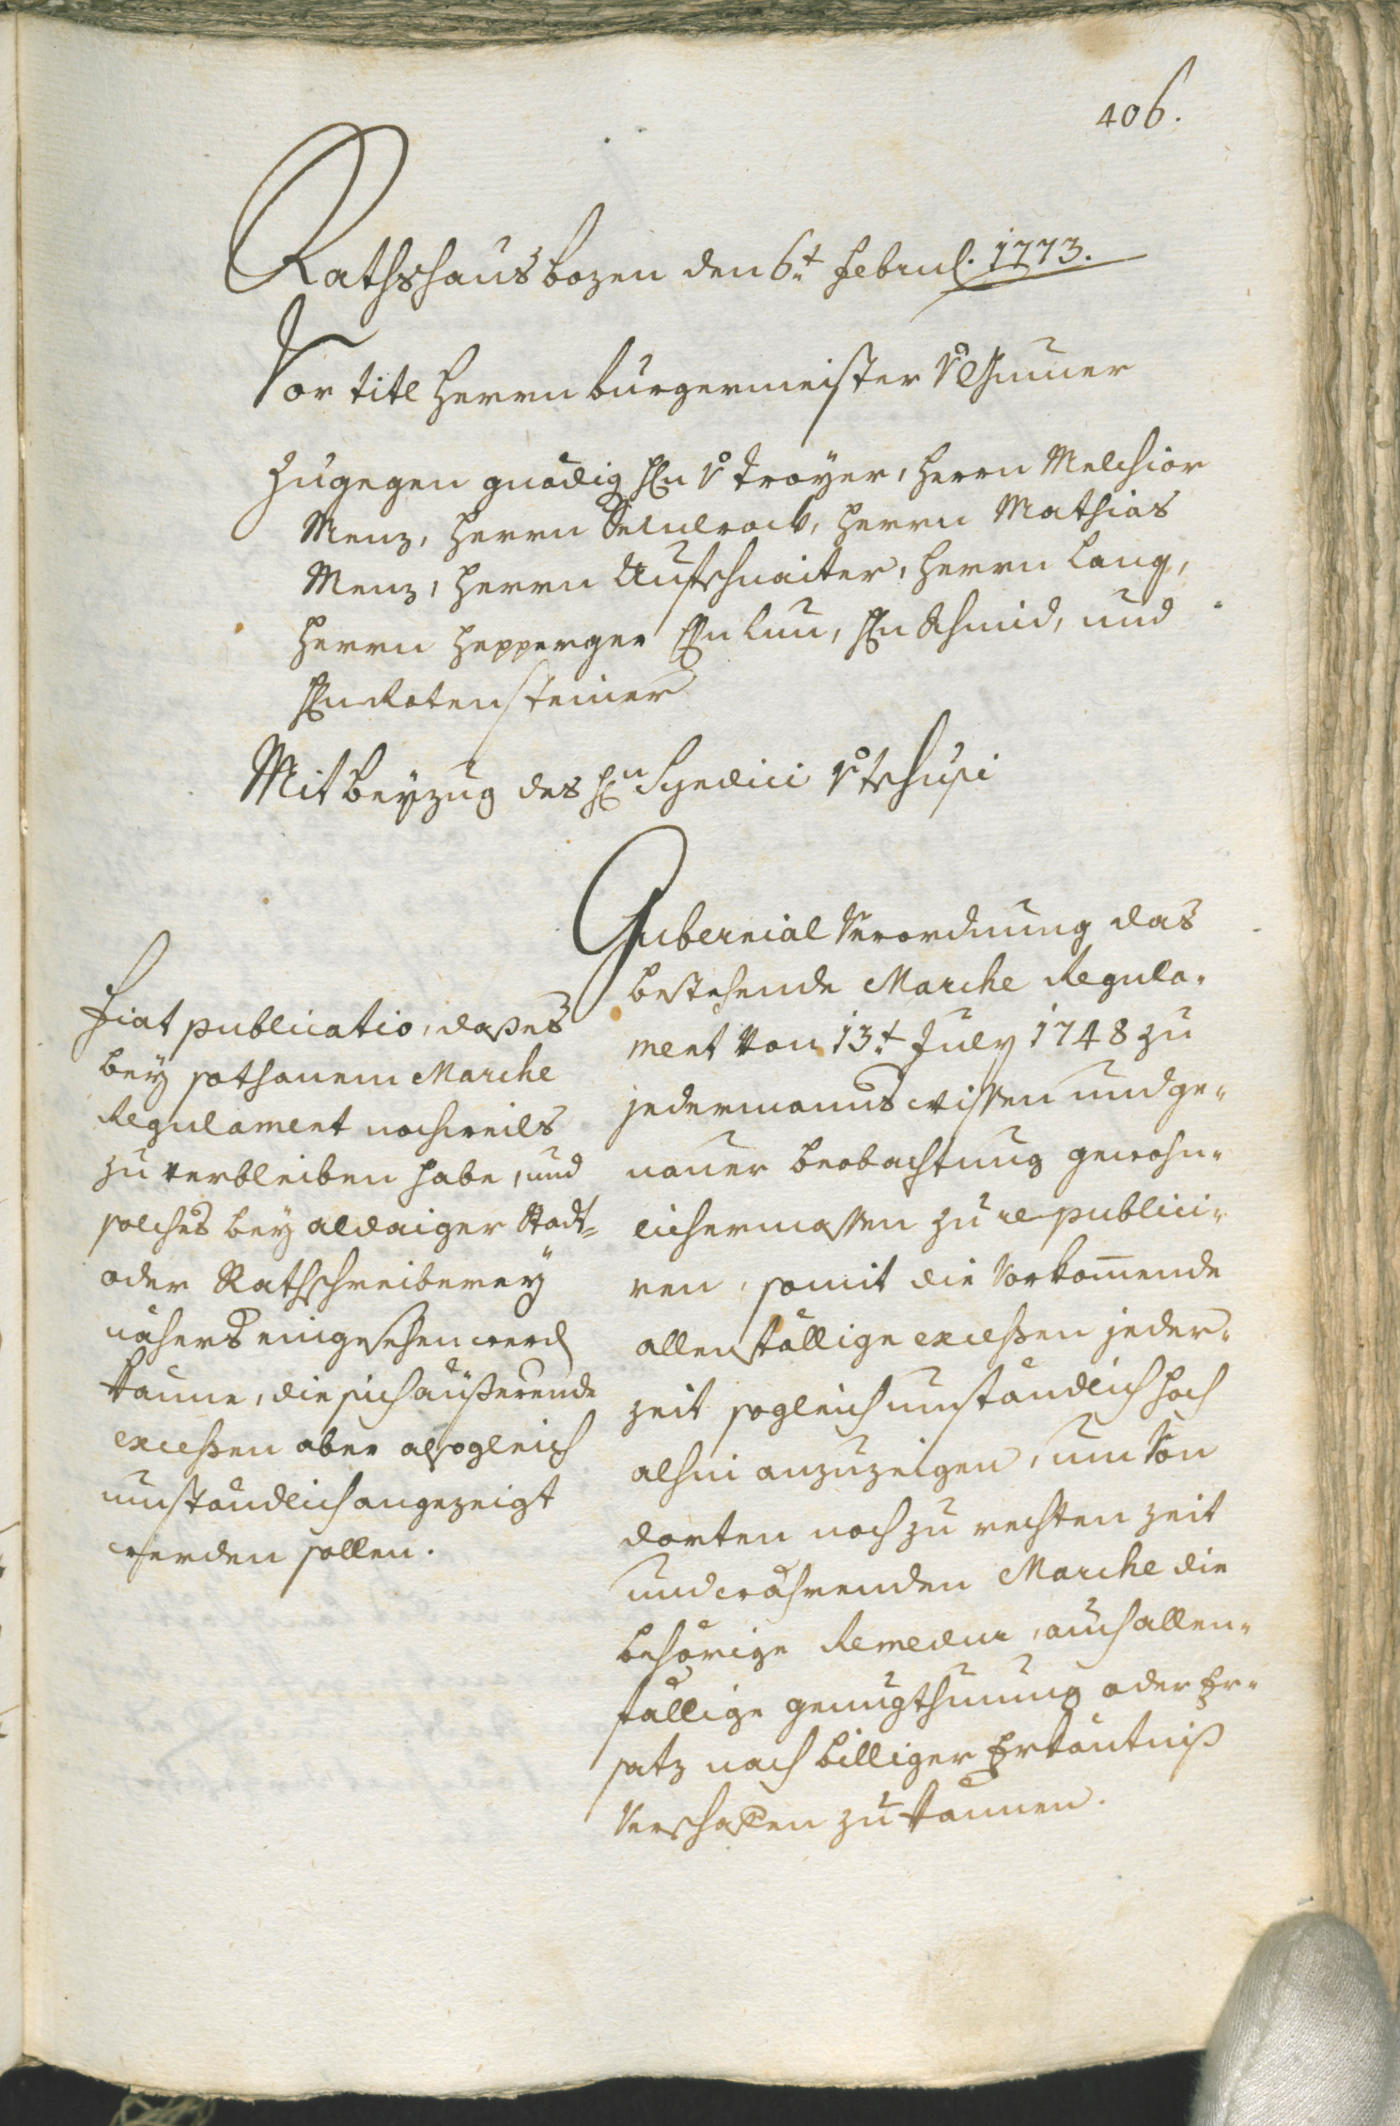 406.
Rathshaus Bozen den 6t. Februl. 1773.
Vor titl Herrn Burgermeister v. Gumer
Zugegen gnädig Hn v. Troyer, Herrn Melchior
Menz, Herrn Herrn Mathias
Menz, Herrn Aufschnaiter, Herrn Lang,
Herrn Hepperger Hn Lun, Hn Schmid, und
Hn Rotensteiner
Mit Beyzug des Hn Syndici v. Tschusi
Fiat publicatio, daß es
bey sothanem Marche
Regulament nochweils
zu verbleiben habe, und
solches bey aldaiger Stadt-
oder Rathschreiberey
nähers eingesehen werd
könne, die sich äußerende
excessen aber alsogleich
umständlich angezeigt
werden sollen.
Gubernial Verordnung das
bestehende Marche Regula-
ment von 13t. July 1748 zu
jedermanns wissen und ge-
nauer beobachtung gewohn-
lichermassen zu republici-
ren, somit die Vorkommende
allenfällige excessen jeder-
zeit sogleich umständlich hoch
alhin anzuzeigen, um Von
dorten noch zu rechten zeit
und währenden Marche die
behörige Remedur, auch allen-
fällige genugthuung oder Er-
satz nach billiger Erkäntniß
Verschaffen zu können.